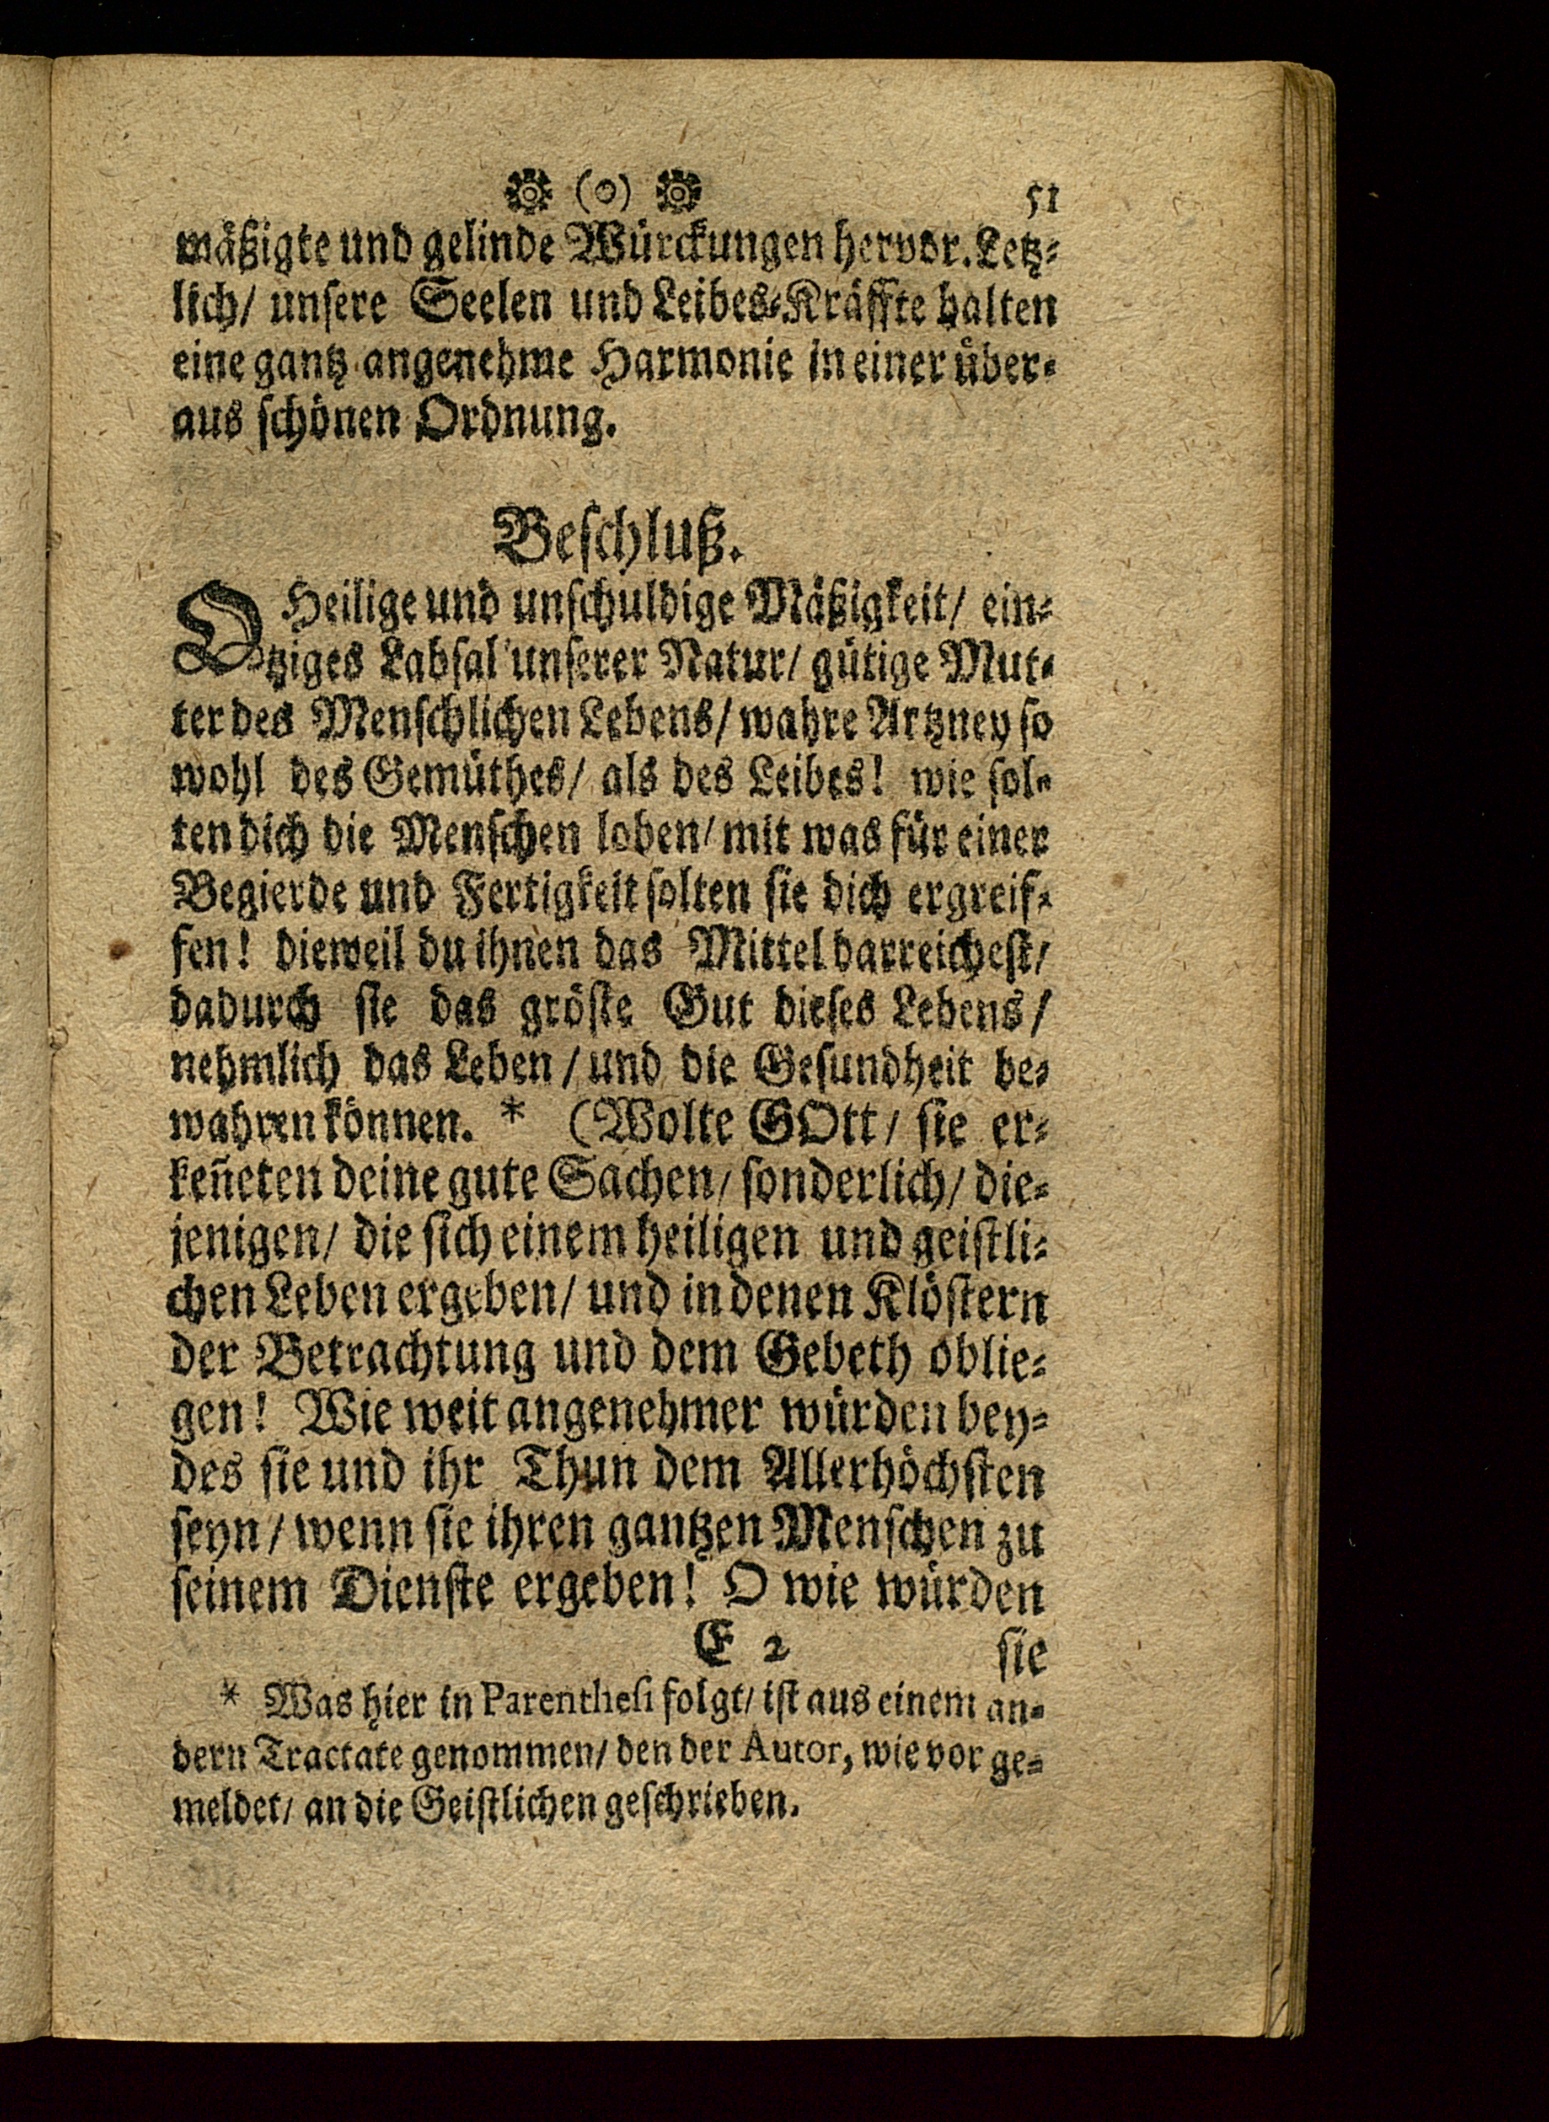 (o) 51
mäßigte und gelinde Würckungen hervor. Letz-
lich/ unsere Seelen und Leibes-Kräffte halten
eine gantz angenehme Harmonie in einer über-
aus schönen Ordnung.
Beschluß.
O Heilige und unschuldige Mäßigkeit/ ein-
tziges Labsal unserer Natur/ gütige Mut-
ter des Menschlichen Lebens/ wahre Artzney so
wohl des Gemüthes/ als des Leibes! wie sol-
ten dich die Menschen loben/ mit was für einer
Begierde und Fertigkeit solten sie dich ergreif-
fen! dieweil du ihnen das Mittel darreichest/
dadurch sie das gröste Gut dieses Lebens/
nehmlich das Leben/ und die Gesundheit be-
wahren können. * (Wolte GOtt/ sie er-
keñeten deine gute Sachen/ sonderlich/ die-
jenigen/ die sich einem heiligen und geistli-
chen Leben ergeben/ und in denen Klöstern
der Betrachtung und dem Gebeth oblie-
gen! Wie weit angenehmer würden bey-
des sie und ihr Thun dem Allerhöchsten
seyn/ wenn sie ihren gantzen Menschen zu
seinem Dienste ergeben! O wie würden
E 2 sie
* Was hier in Parenthesi folgt/ ist aus einem an-
dern Tractate genommen/ den der Autor, wie vor ge-
meldet/ an die Geistlichen geschrieben.